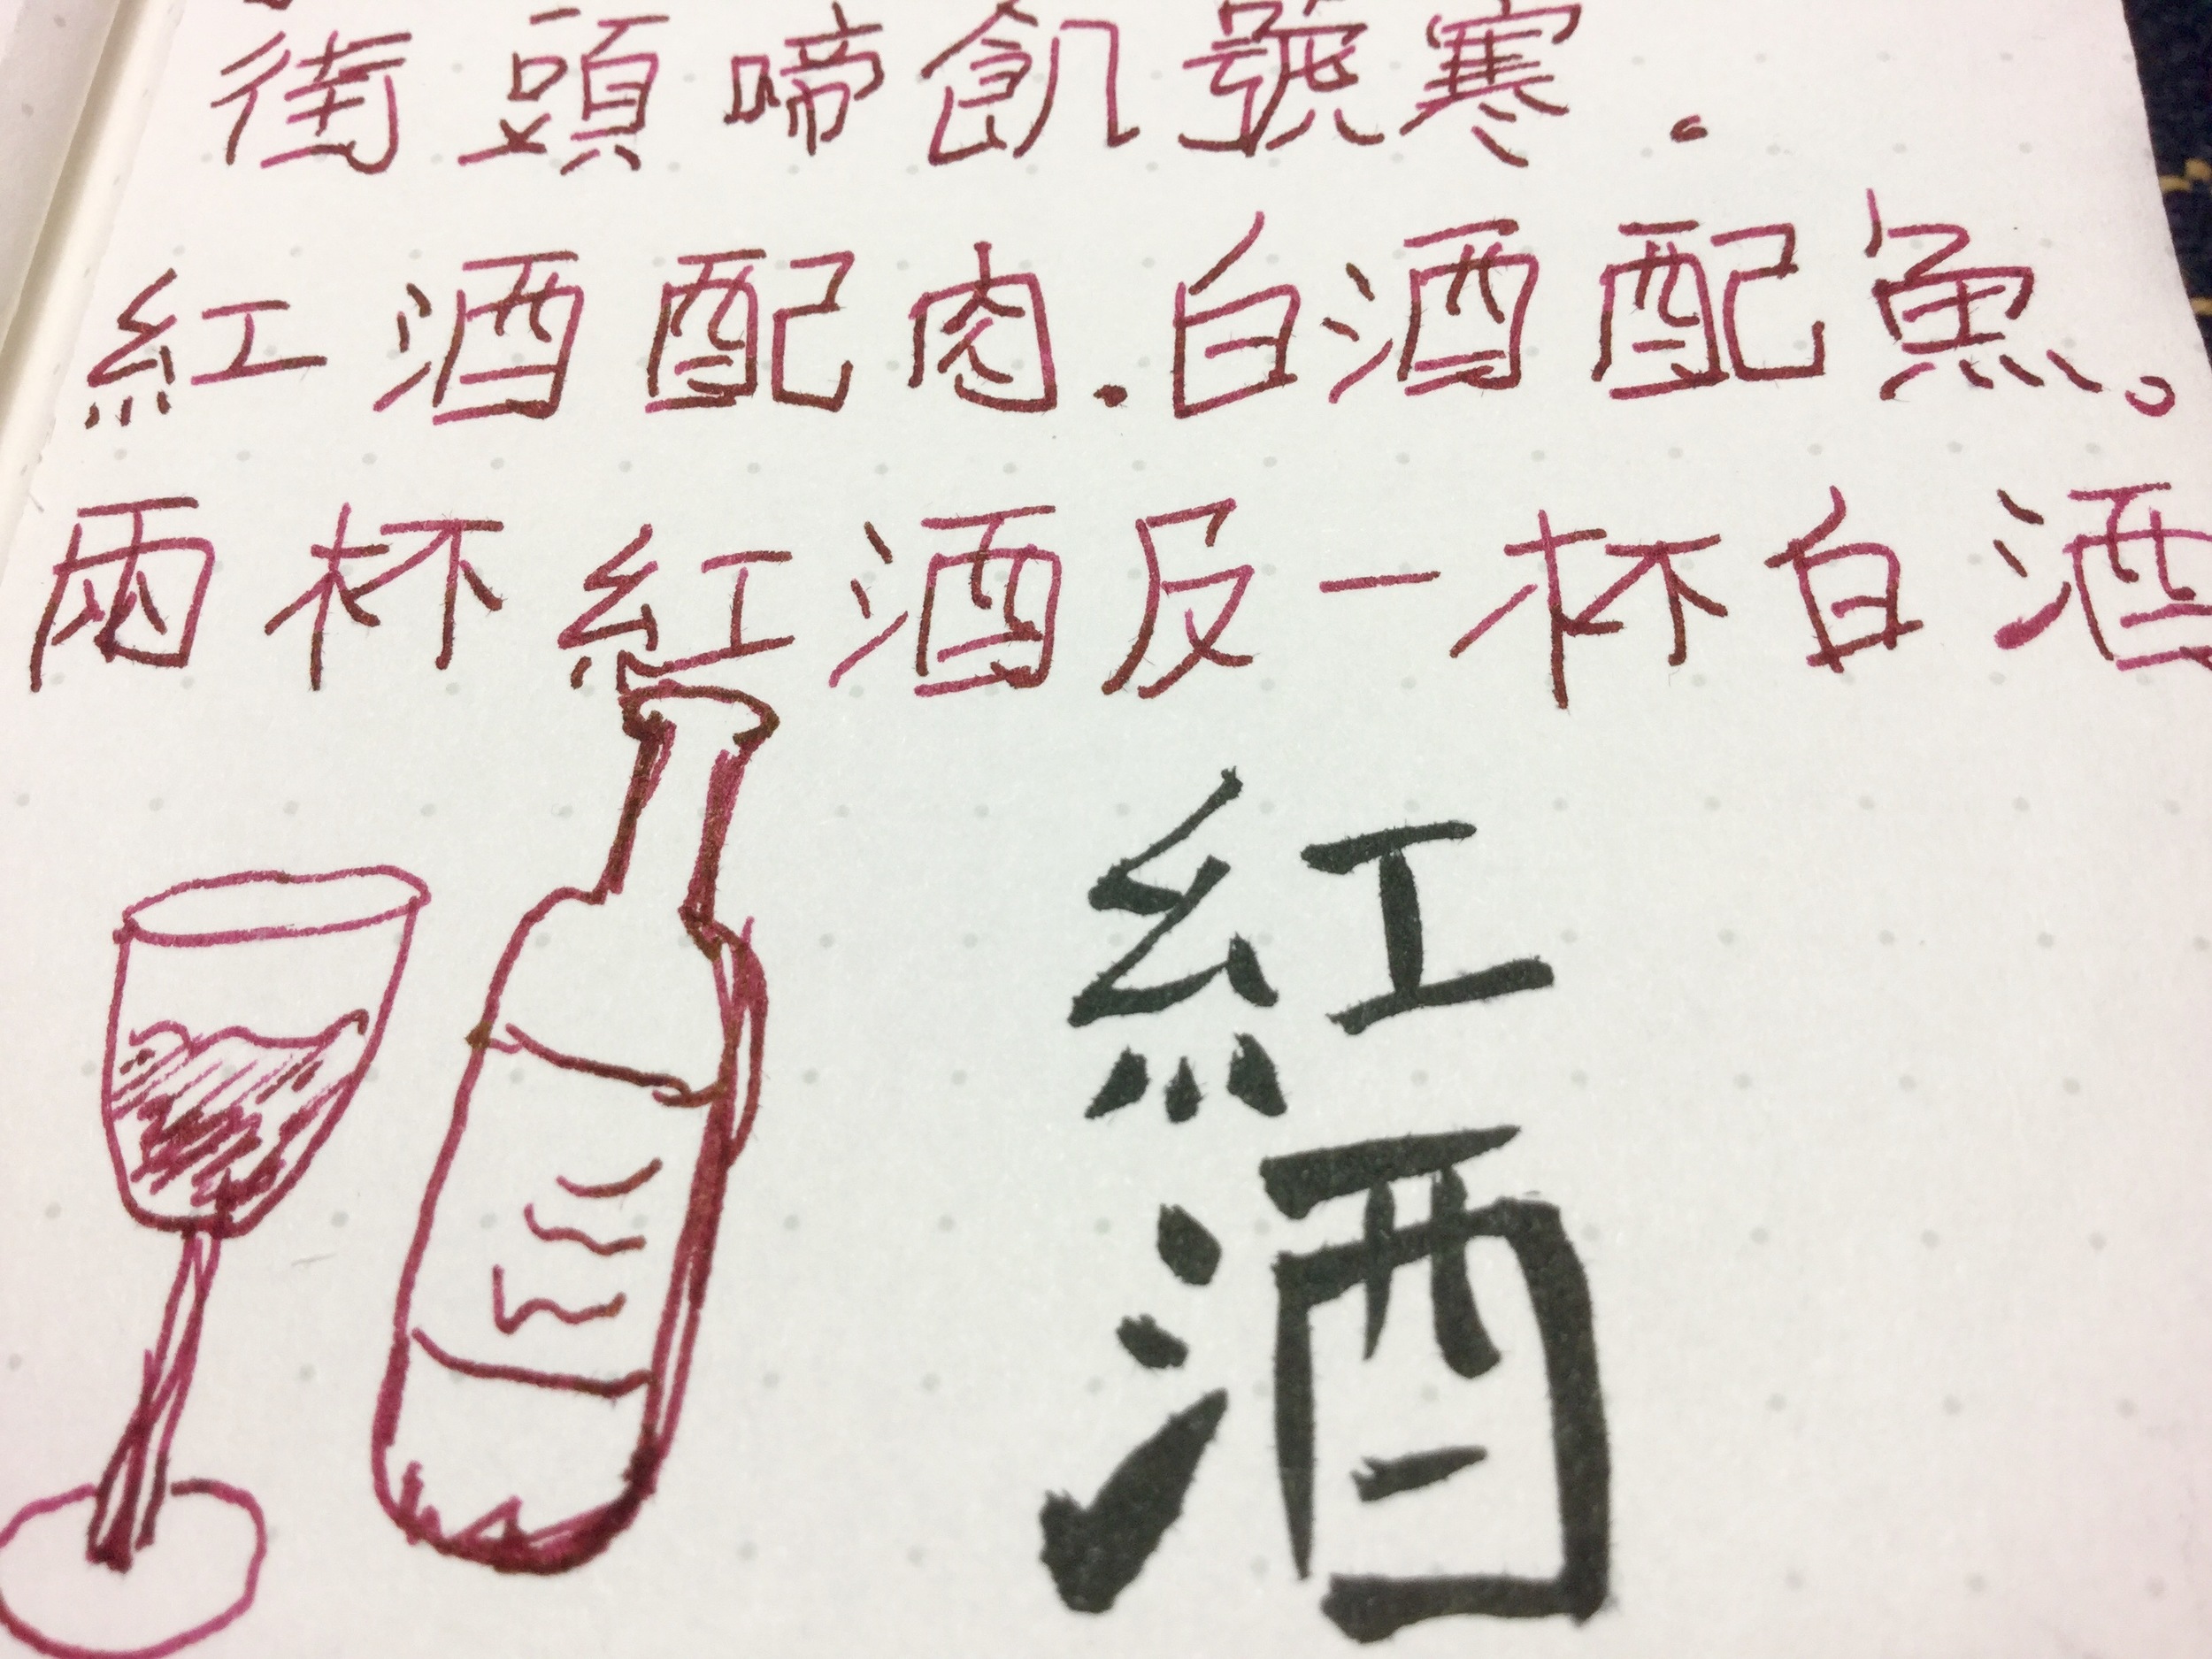 街頭啼飢號寒.
紅酒配肉.白酒配魚。
兩杯紅酒反一杯白酒
紅
酒